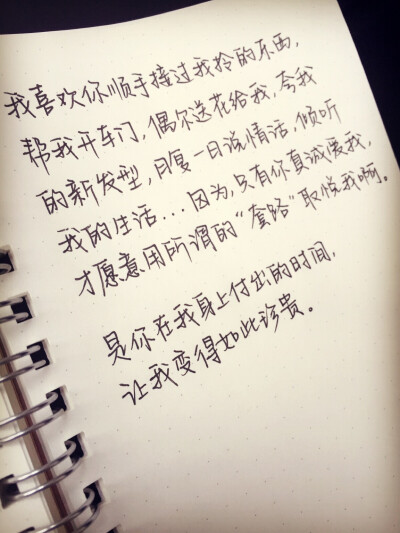 我喜欢你顺手接过我拎的东西,
帮我开车门,偶尔送花给我,夸我
的新发型,日复一日说情话,倾听
我的生活...因为,只有你真诚爱我,
才愿意用所谓的“套路”取悦我啊。
是你在我身上付出的时间,
让我变得如此珍贵。